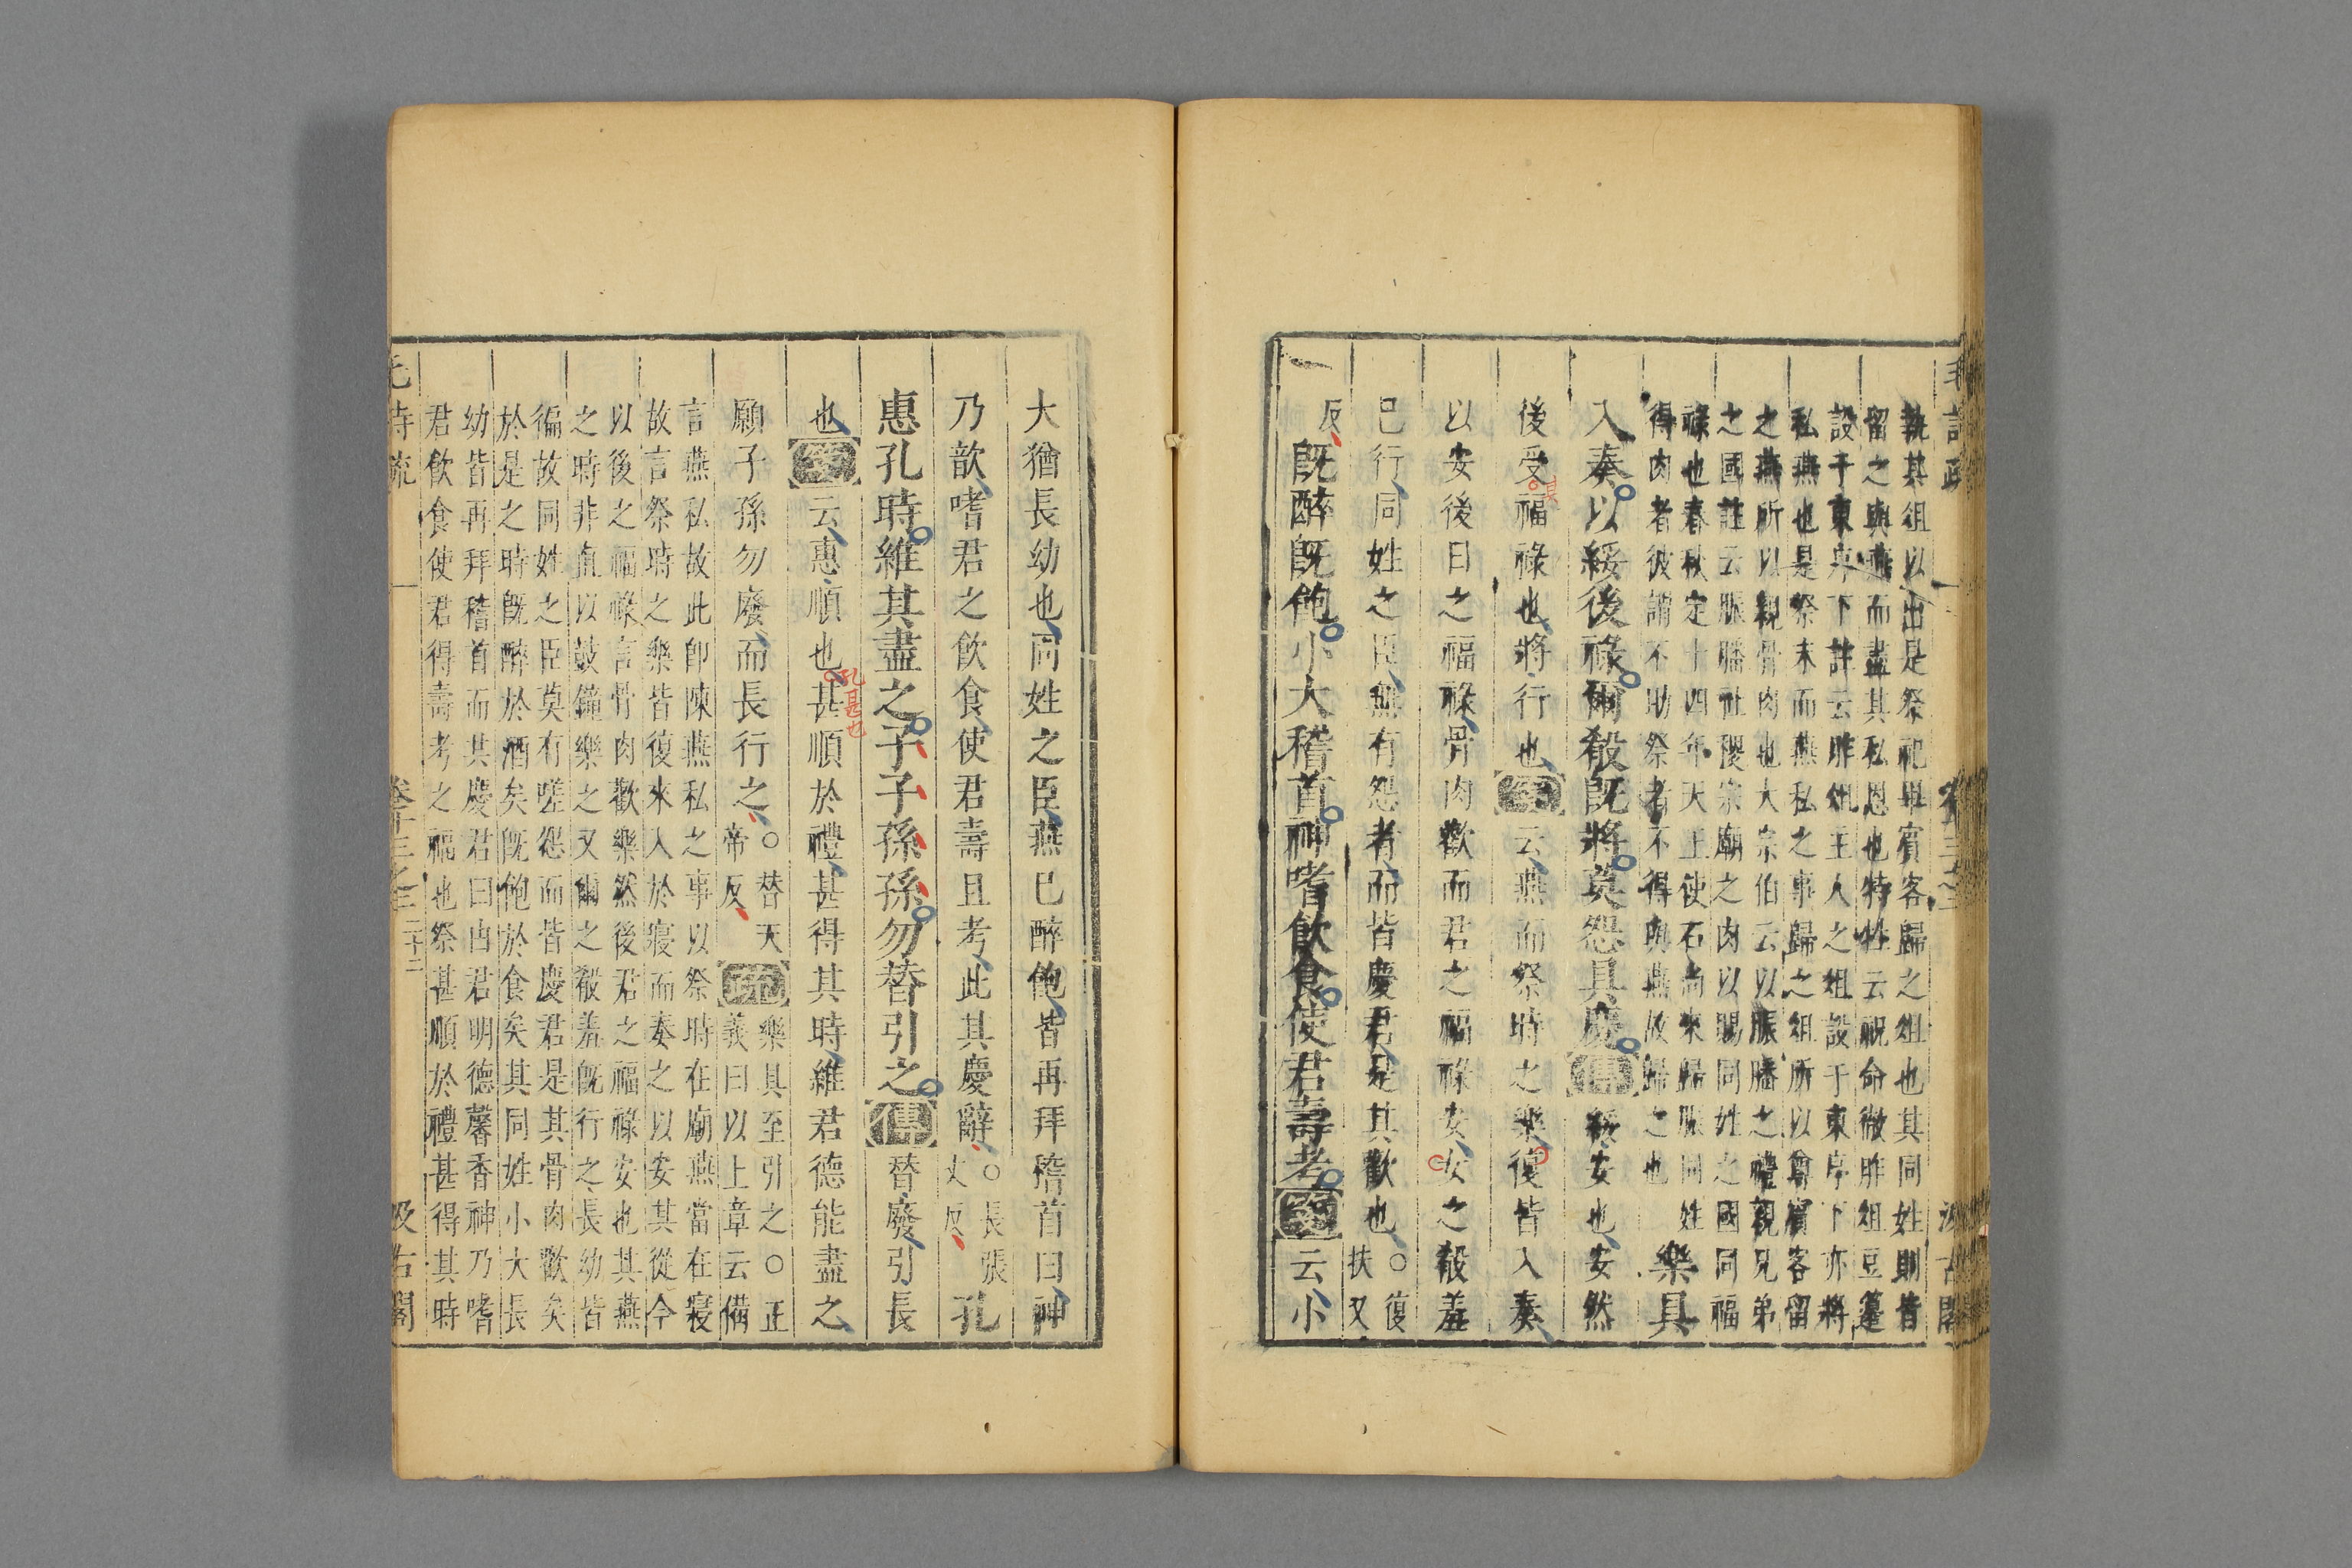 毛詩疏 卷十三之二 汲古閣
執其俎以出是祭祀畢賓客歸之俎也其同姓則皆
留之與燕而盡其私恩也特牲云祝命徹胙俎豆籩
設于東序下註云胙俎主人之俎設于東序下亦將
私燕也是祭末而燕私之事歸之俎所以尊賓客留
之燕所以親骨肉也大宗伯云以脤膰之禮親兄弟
之國註云脤膰社稷宗廟之肉以賜同姓之國同福
祿也春秋定十四年天王使石尚來歸脤同姓
得肉者彼謂不助祭者不得與燕故歸之也
樂具
入奏以綏後祿爾殽既將莫怨具慶傳綏安也安然
後受福祿也將行也箋云燕而祭時之樂復皆入奏
以安後日之福祿骨肉歡而君之福祿安女之殽羞
已行同姓之臣無有怨者而皆慶君是其歡也○復扶又
反既醉既飽小大稽首神嗜飲食使君壽考箋云小
大猶長幼也同姓之臣燕已醉飽皆再拜稽首曰神
乃歆嗜君之飲食使君壽且考此其慶辭○長張丈反孔
惠孔時維其盡之子子孫孫勿替引之傳替廢引長
也箋云惠順也甚順於禮甚得其時維君德能盡之
孔甚也
願子孫勿廢而長行之○替天帝反疏樂具至引之○正義曰以上章云備
言燕私故此即陳燕私之事以祭時在廟燕當在寢
故言祭時之樂皆復來入於寢而奏之以安其從今
以後之福祿言骨肉歡樂然後君之福祿安也其燕
之時非直以鼓鐘樂之又爾之殽羞既行之長幼皆
徧故同姓之臣莫有嗟怨而皆慶君是其骨肉歡矣
於是之時既醉於酒矣既飽於食矣其同姓小大長
幼皆再拜稽首而共慶君曰由君明德馨香神乃嗜
君飲食使君得壽考之福也祭甚順於禮甚得其時
毛詩疏 卷十三之二 二十二 汲古閣